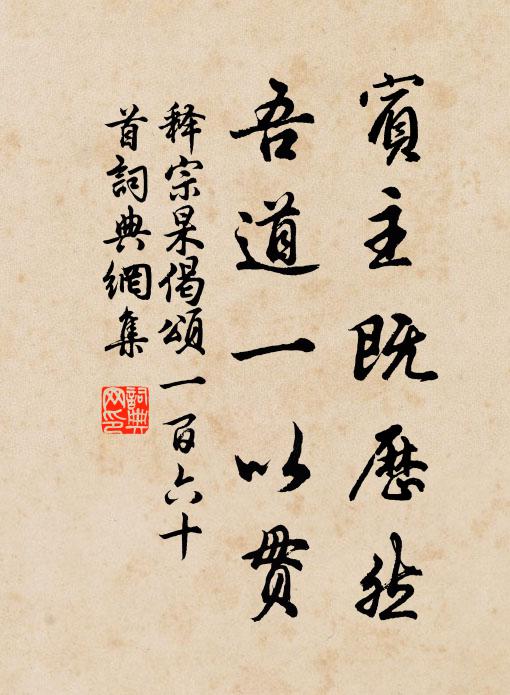 賓主既歷然
吾道一以貫
釋宗杲偈頌一百六十
首詞典網集
詞典网印